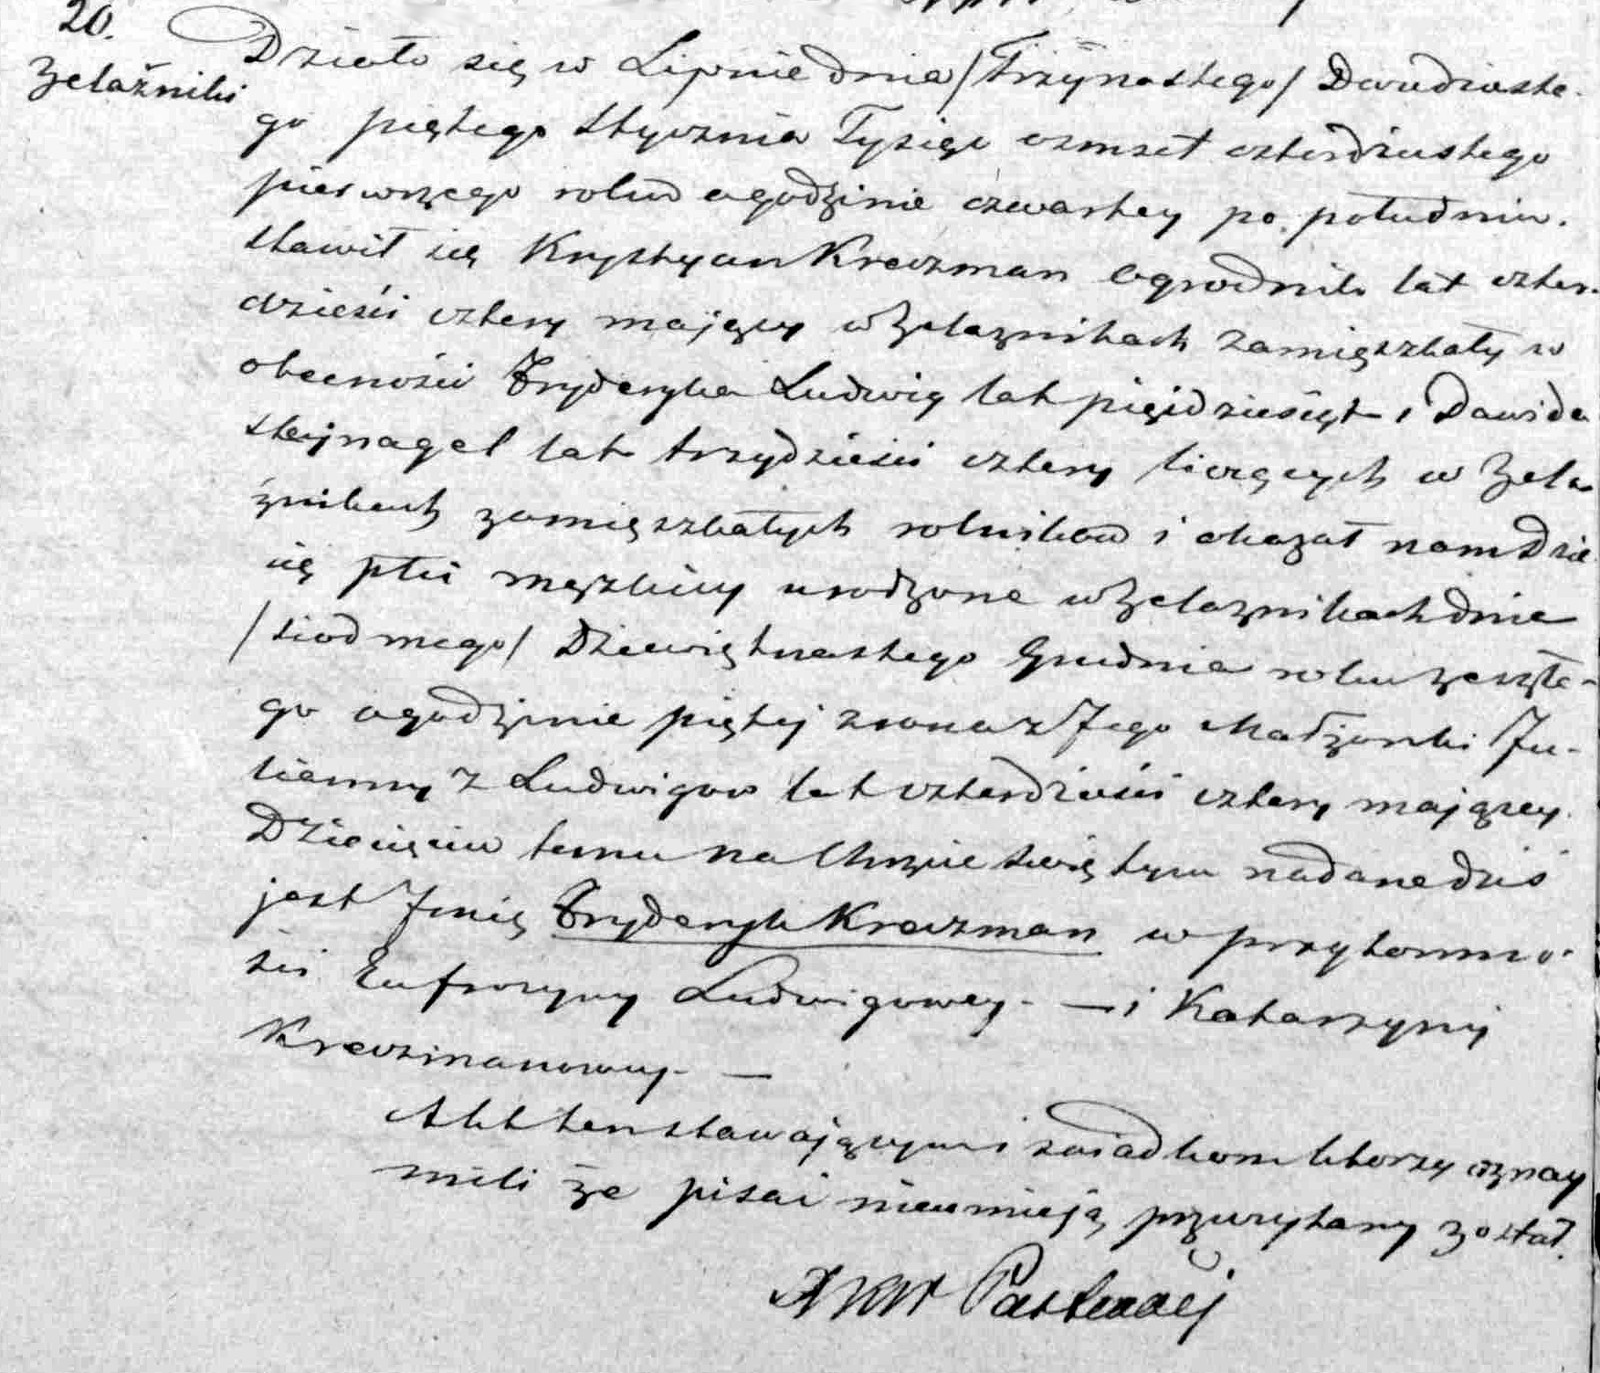 20.
Zelaźniki
Działo się w Lipnie dnia /Trzynastego/ Dwudzieste-
go piątego Stycznia Tysiąc osmset czterdziestego
pierwszego roku o godzinie czwartey po południu.
Stawił się Krystyan Kreczman Ogrodnik lat czter-
dzieści cztery maiący w Zelaznikach zamięszkały w
obecności Fryderyka Ludwig lat pięćdziesiąt i Dawida
Stejnagel lat trzydzieści cztery liczących w Zela-
źnikach zamięszkałych rolników i okazał nam dzie-
cię płci męzkiey urodzone w Zelaznikach dnia
/siodmego/ Dziewiętnastego Grudnia roku zeszłe-
go o godzinie piątej zrana z Jego Małżonki Ju-
lianny z Ludwigow lat czterdzieści cztery mającey.
Dziecięciu temu na Chrzcie świętym nadane dziś
jest Imię Fryderyk Kreczman w przytomno-
ści Eufrozyny Ludwigowey - — i Katarzyny
Kreczmanowey - —
Akt ten stawaiącym i świadkom którzy oznay
mili że pisać nieumieją, przeczytany został.